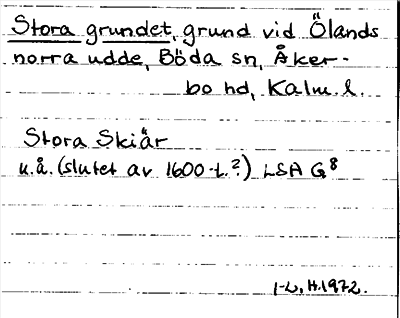 Stora grundet, grund vid Ölands
norra udde, Böda sn, Åker-
bo hd, Kalm. l.
Stora Skiär
u.å. (slutet av 1600-t.?) LSA G8
H.1972.